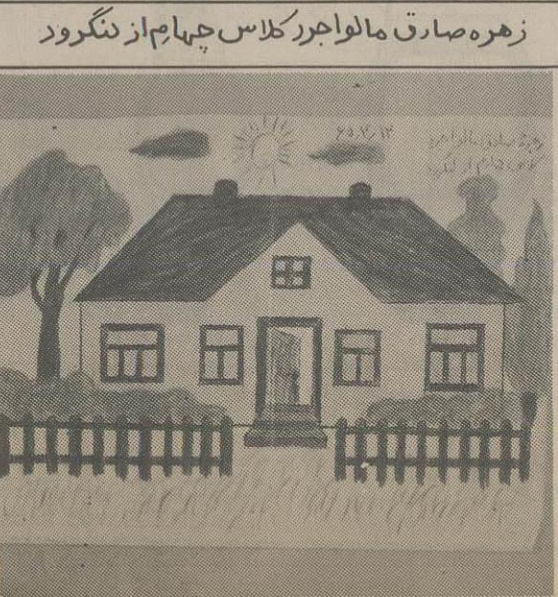 زهره صادق مالواجرد کلاس چهارم از لنگرود
۶۵،۷،۱۲
زهره صادق مالواجرد
کلاس چهارم از لنگرود